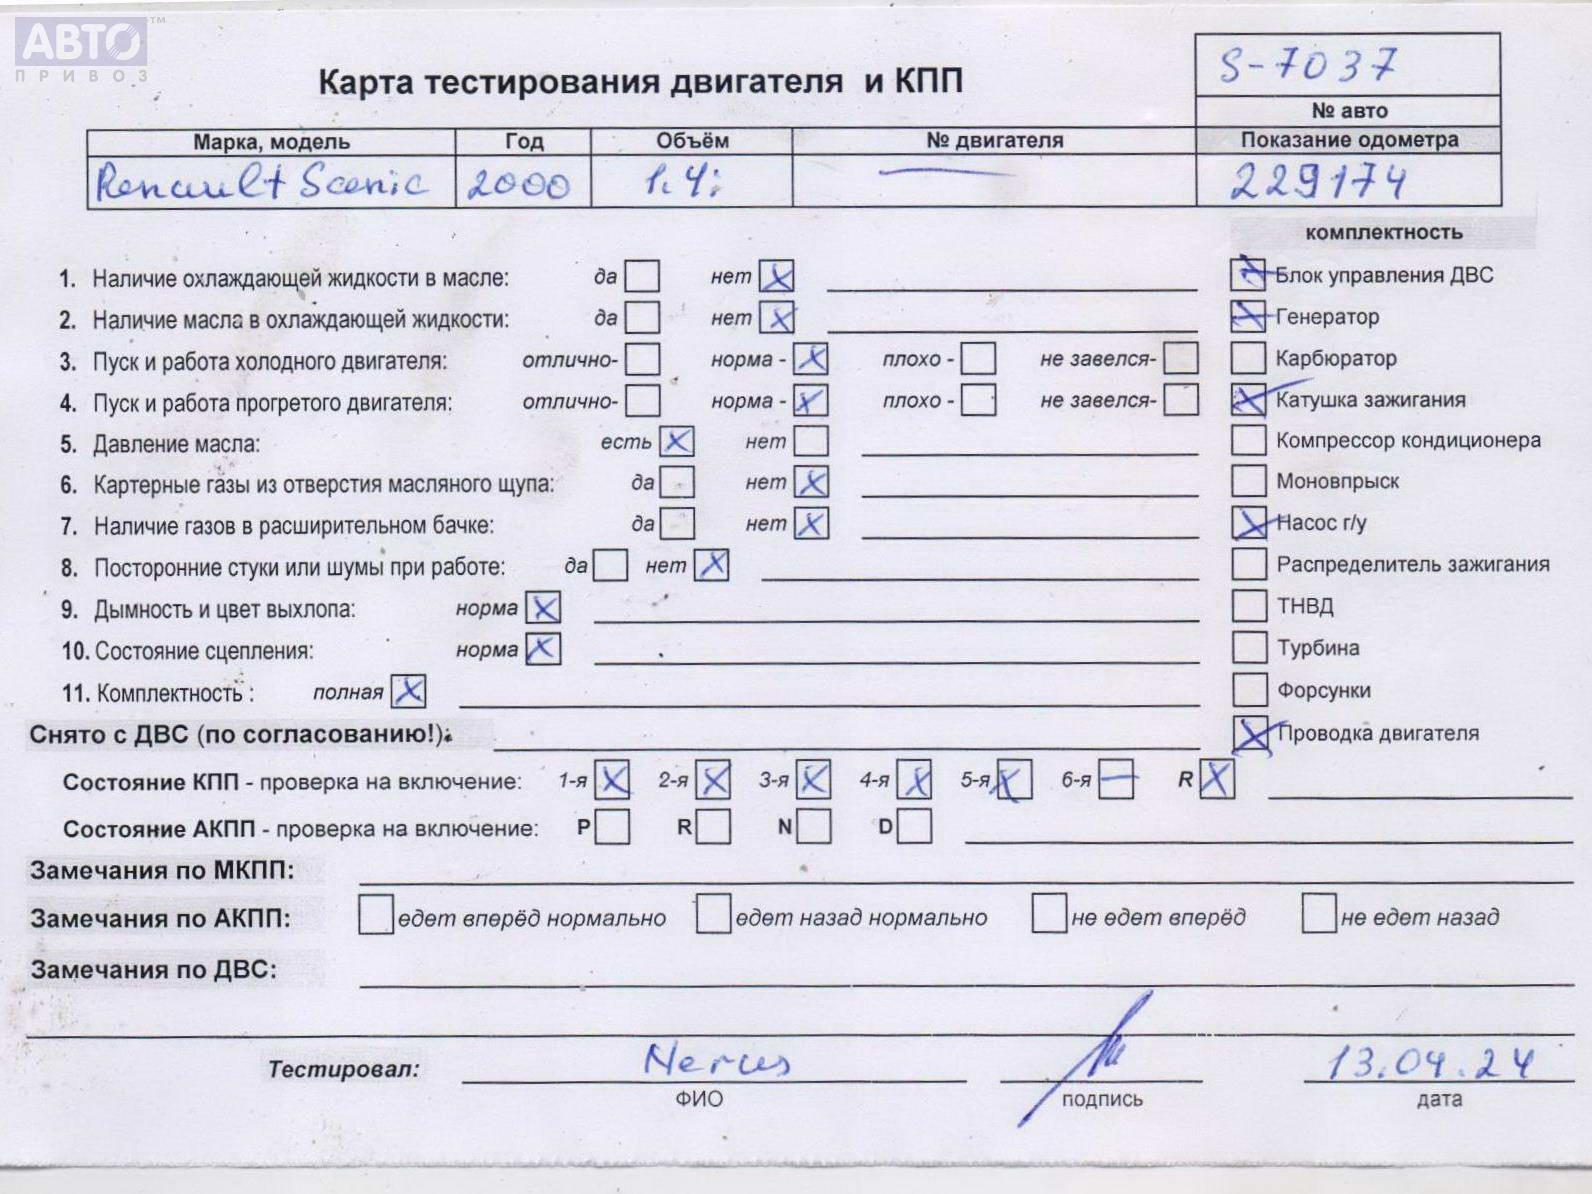 АВТО™
ПРИВОЗ
Карта тестирования двигателя и КПП
S-7037
№ авто
Марка, модель Год Объём № двигателя Показание одометра
Renault Scenic 2000 1.4i — 229174
комплектность
1. Наличие охлаждающей жидкости в масле: да нет X Блок управления ДВС
2. Наличие масла в охлаждающей жидкости: да нет X Генератор
3. Пуск и работа холодного двигателя: отлично- норма - X плохо - не завелся- Карбюратор
4. Пуск и работа прогретого двигателя: отлично- норма - X плохо - не завелся- X Катушка зажигания
5. Давление масла: есть X нет Компрессор кондиционера
6. Картерные газы из отверстия масляного щупа: да нет X Моновпрыск
7. Наличие газов в расширительном бачке: да нет X X Насос г/у
8. Посторонние стуки или шумы при работе: да нет X Распределитель зажигания
9. Дымность и цвет выхлопа: норма X ТНВД
10. Состояние сцепления: норма X Турбина
11. Комплектность : полная X Форсунки
Снято с ДВС (по согласованию!): X Проводка двигателя
Состояние КПП - проверка на включение: 1-я X 2-я X 3-я X 4-я X 5-я X 6-я — R X
Состояние АКПП - проверка на включение: P R N D
Замечания по МКПП:
Замечания по АКПП: едет вперёд нормально едет назад нормально не едет вперёд не едет назад
Замечания по ДВС:
Тестировал: 13.04.24
ФИО подпись дата